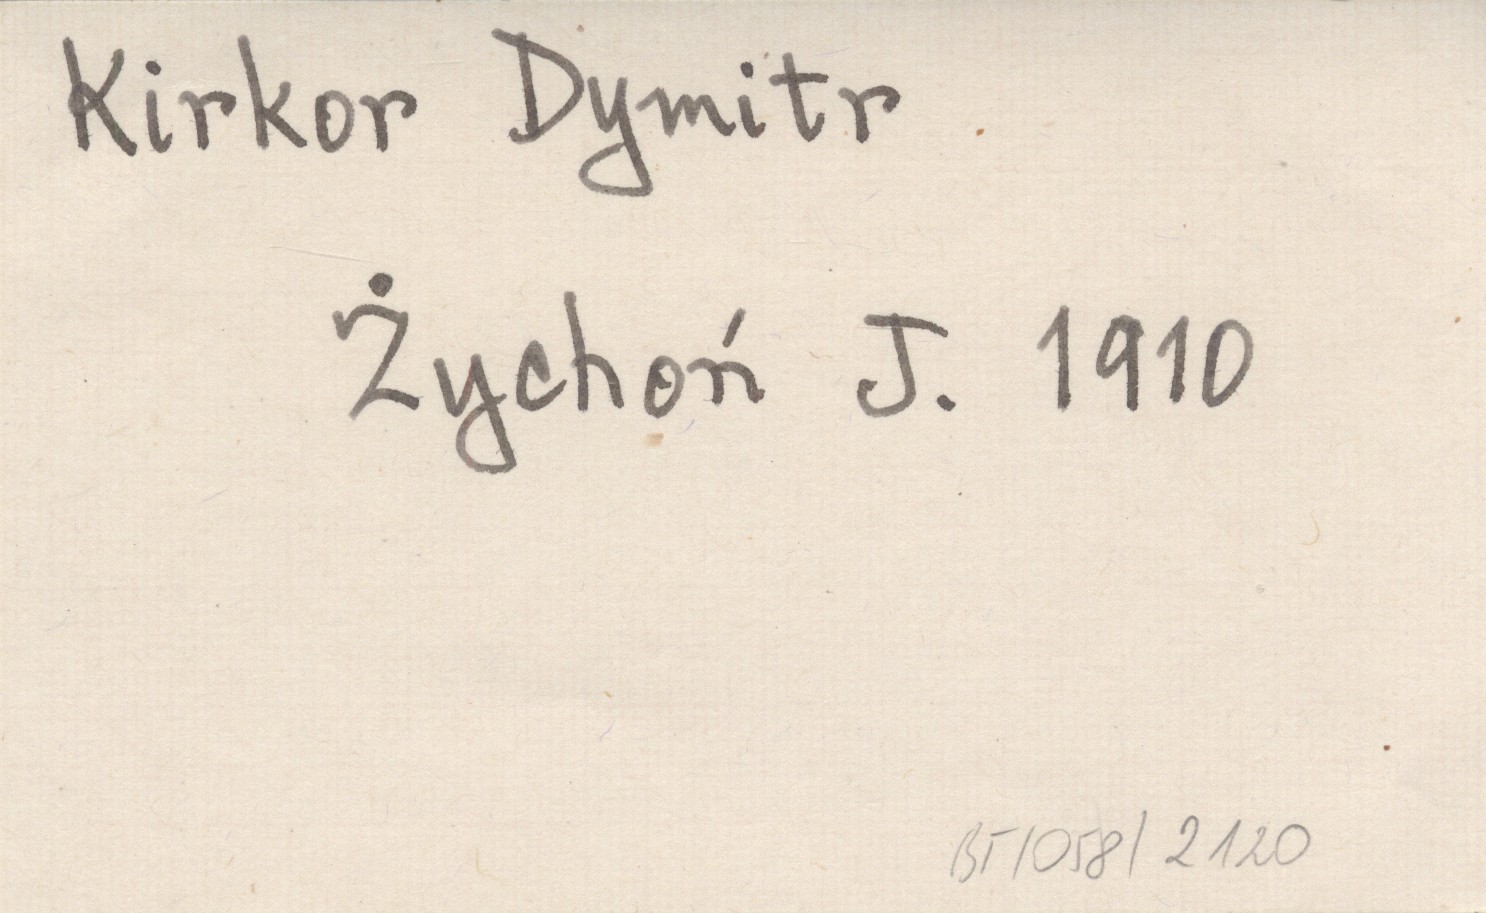 Kirkor Dymitr
Żychoń J. 1910
BT/058/2120